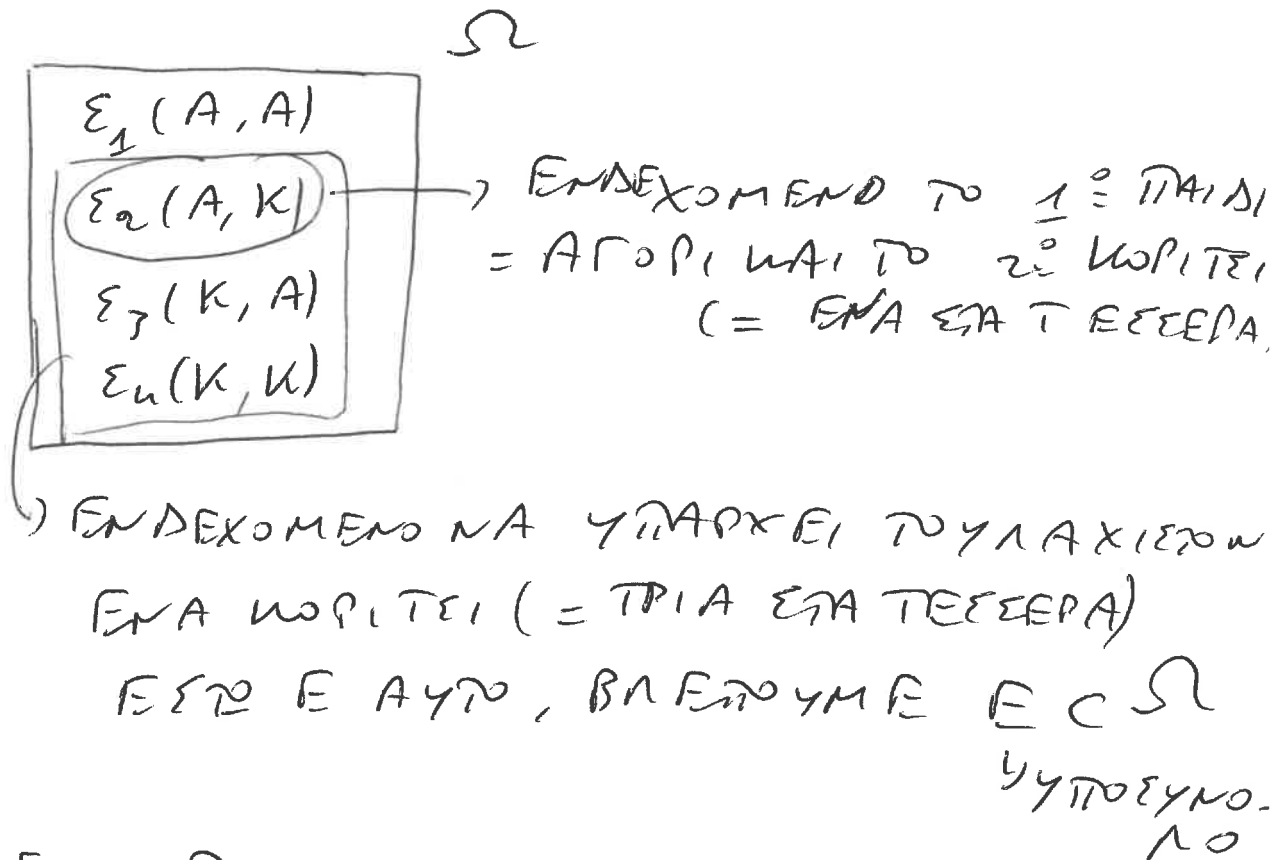 Ω
ε₁ (Α, Α)
ε₂ (Α, Κ) → ΕΝΔΕΧΟΜΕΝΟ ΤΟ 1º ΠΑΙΔΙ
= ΑΓΟΡΙ ΚΑΙ ΤΟ 2º ΚΟΡΙΤΣΙ
ε₃ (Κ, Α)
(= ΕΝΑ ΣΤΑ ΤΕΣΣΕΡΑ
ε₄ (Κ, Κ)
ΕΝΔΕΧΟΜΕΝΟ ΝΑ ΥΠΑΡΧΕΙ ΤΟΥΛΑΧΙΣΤΟΝ
ΕΝΑ ΚΟΡΙΤΣΙ (= ΤΡΙΑ ΣΤΑ ΤΕΣΣΕΡΑ)
ΕΣΤΩ Ε ΑΥΤΟ, ΒΛΕΠΟΥΜΕ Ε ⊂ Ω
ΥΠΟΣΥΝΟ-
ΛΟ